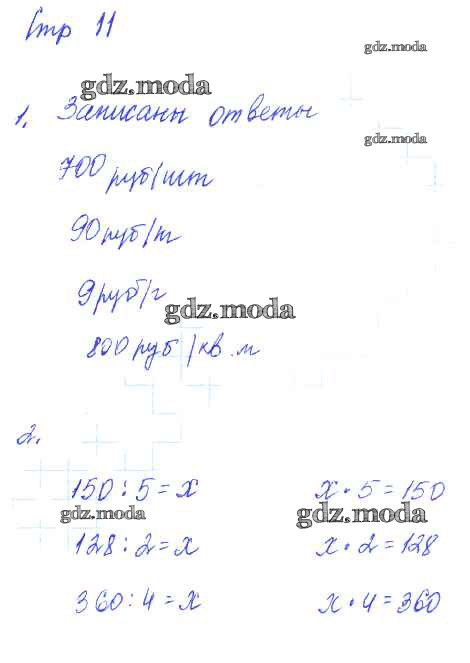 Стр 11
gdz.moda
gdz.moda
1. Записаны ответы
gdz.moda
700 руб/шт
90 руб/т
9 руб/г
gdz.moda
800 руб/кв.м
2.
150 : 5 = x x • 5 = 150
gdz.moda gdz.moda
128 : 2 = x x • 2 = 128
360 : 4 = x x • 4 = 360